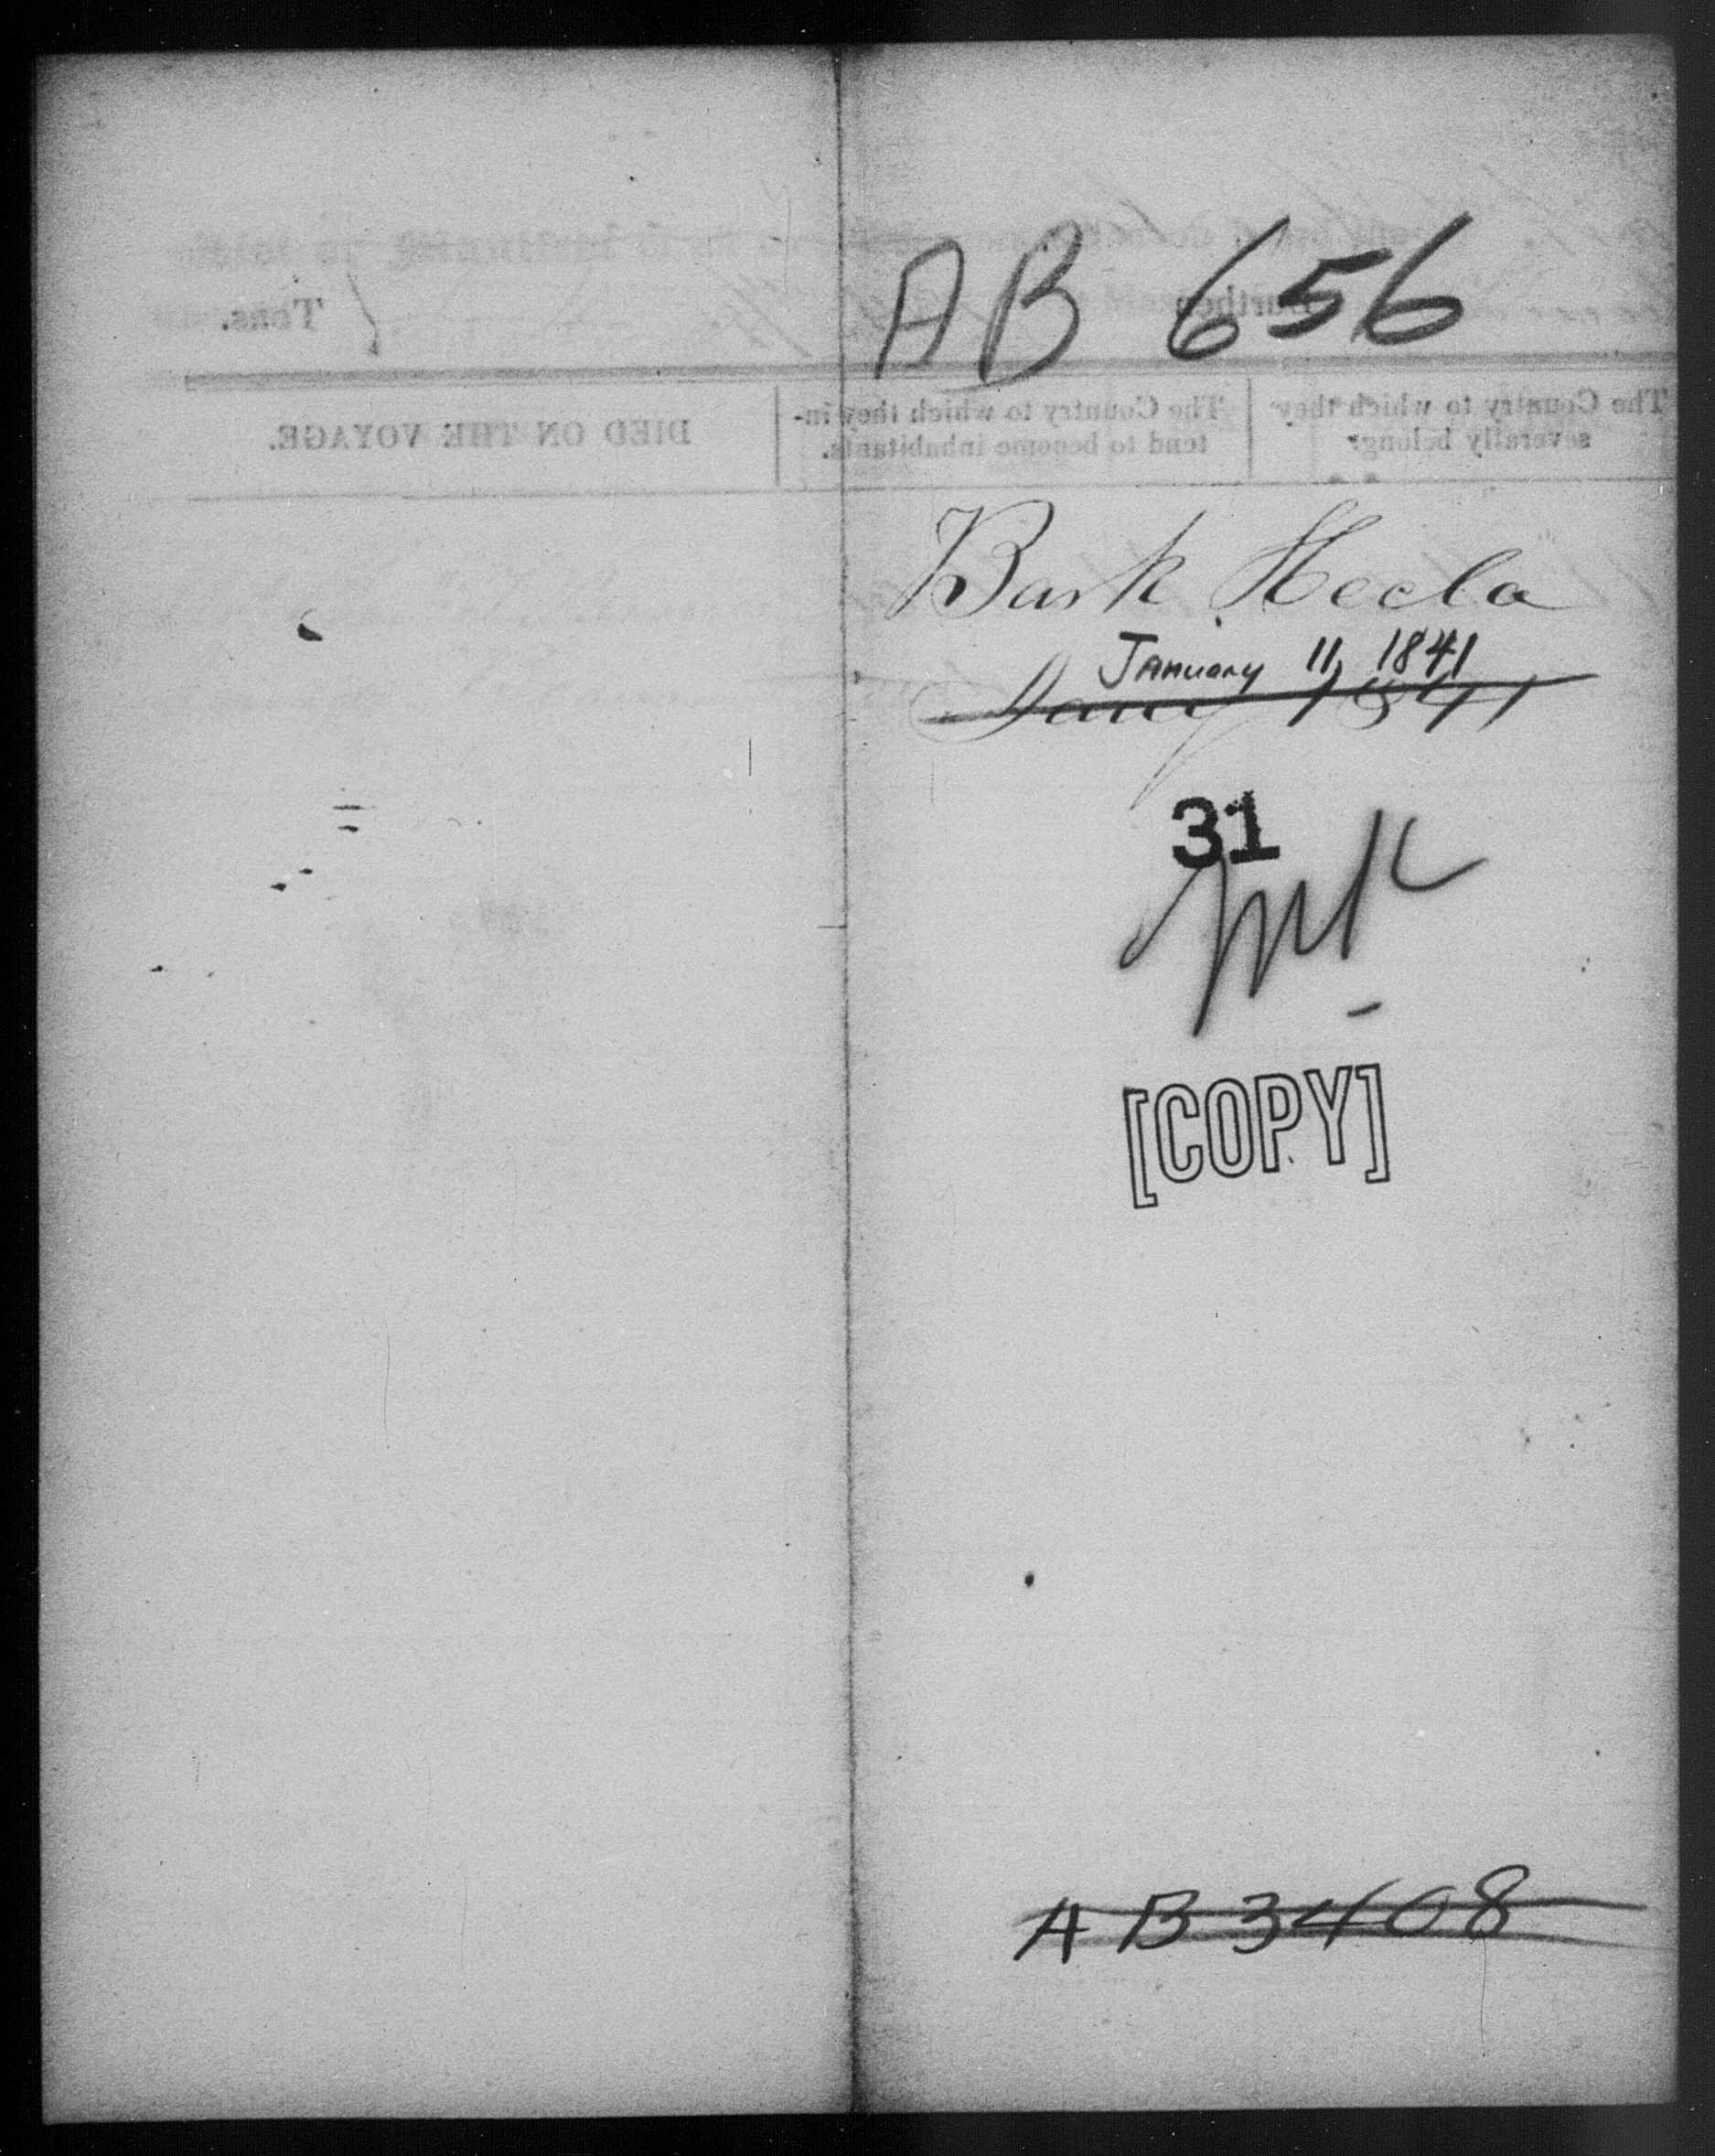 AB 656
Tons.
The Country to which they
severally belong:
The Country to which they in-
tend to become inhabitants.
DIED ON THE VOYAGE.
Bark Hecla
January 11, 1841
Jany 1841
31
[COPY]
AB 3408